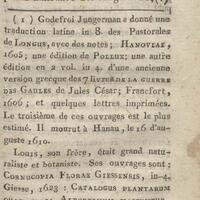 ( 1 ) Godefroi Jungerman a donné une
traduction latine in 8. des Pastorales
de LONGUS, avec des notes; HANOVIAE,
1605; une édition de POLLUX; une autre
édition en 2 vol. in 4. d'une ancienne
version grecque des 7 livres DE LA GUERRE
DES GAULES de Jules César; Francfort,
1606; et quelques lettres imprimées.
Le troisième de ces ouvrages est le plus
estimé. Il mourut à Hanau, le 16 d'au-
guste 1610.
LOUIS, son frère, était grand natu-
raliste et botaniste. Ses ouvrages sont :
CORNUCOPIA FLORAE GIESSENSIS, in-4.
Giesse, 1623 : CATALOGUS PLANTARUM